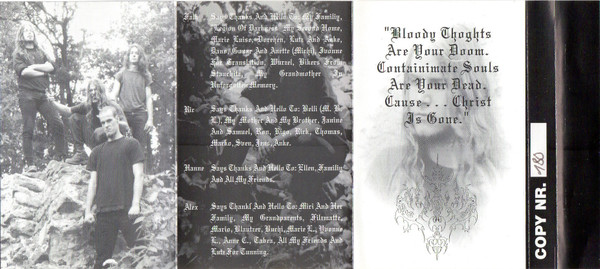 Falk Says Thanks And Hello To: My Familiy,
"Legion Of Darkness" My Second Home,
Marie Luise, Dorchen, Lutz And Anke,
Dana, Goose And Anette (Michi), Yvonne
For Translation, Wurzel, Bikers From
Stauchitz, My Grandmother In
Unforgotten Memory.
Ric Says Thanks And Hello To: Belli (M. Be
L.), My Mother And My Brother, Janine
And Samuel, Ron, Rigo, Dirk, Thomas,
Marko, Sven, Jens, Anke.
Hanno Says Thanks And Hello To: Ellen, Familiy
And All My Friends.
Alex Says Thankf And Hello To: Miri And Her
Family, My Grandparents, Filzmatte,
Mario, Blautzer, Buchi, Marie L., Yvonne
L., Anne C., Tabea, All My Friends And
Lutz For Tunning.
"Bloody Thoghts
Are Your Doom.
Containimate Souls
Are Your Dead.
Cause . . . Christ
Is Gone."
COPY NR. 180